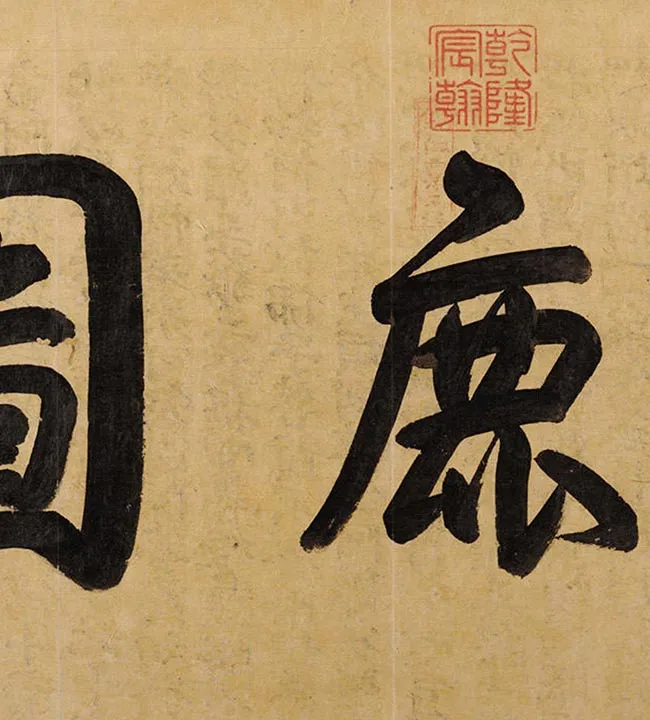 乾隆宸翰
鹿圖